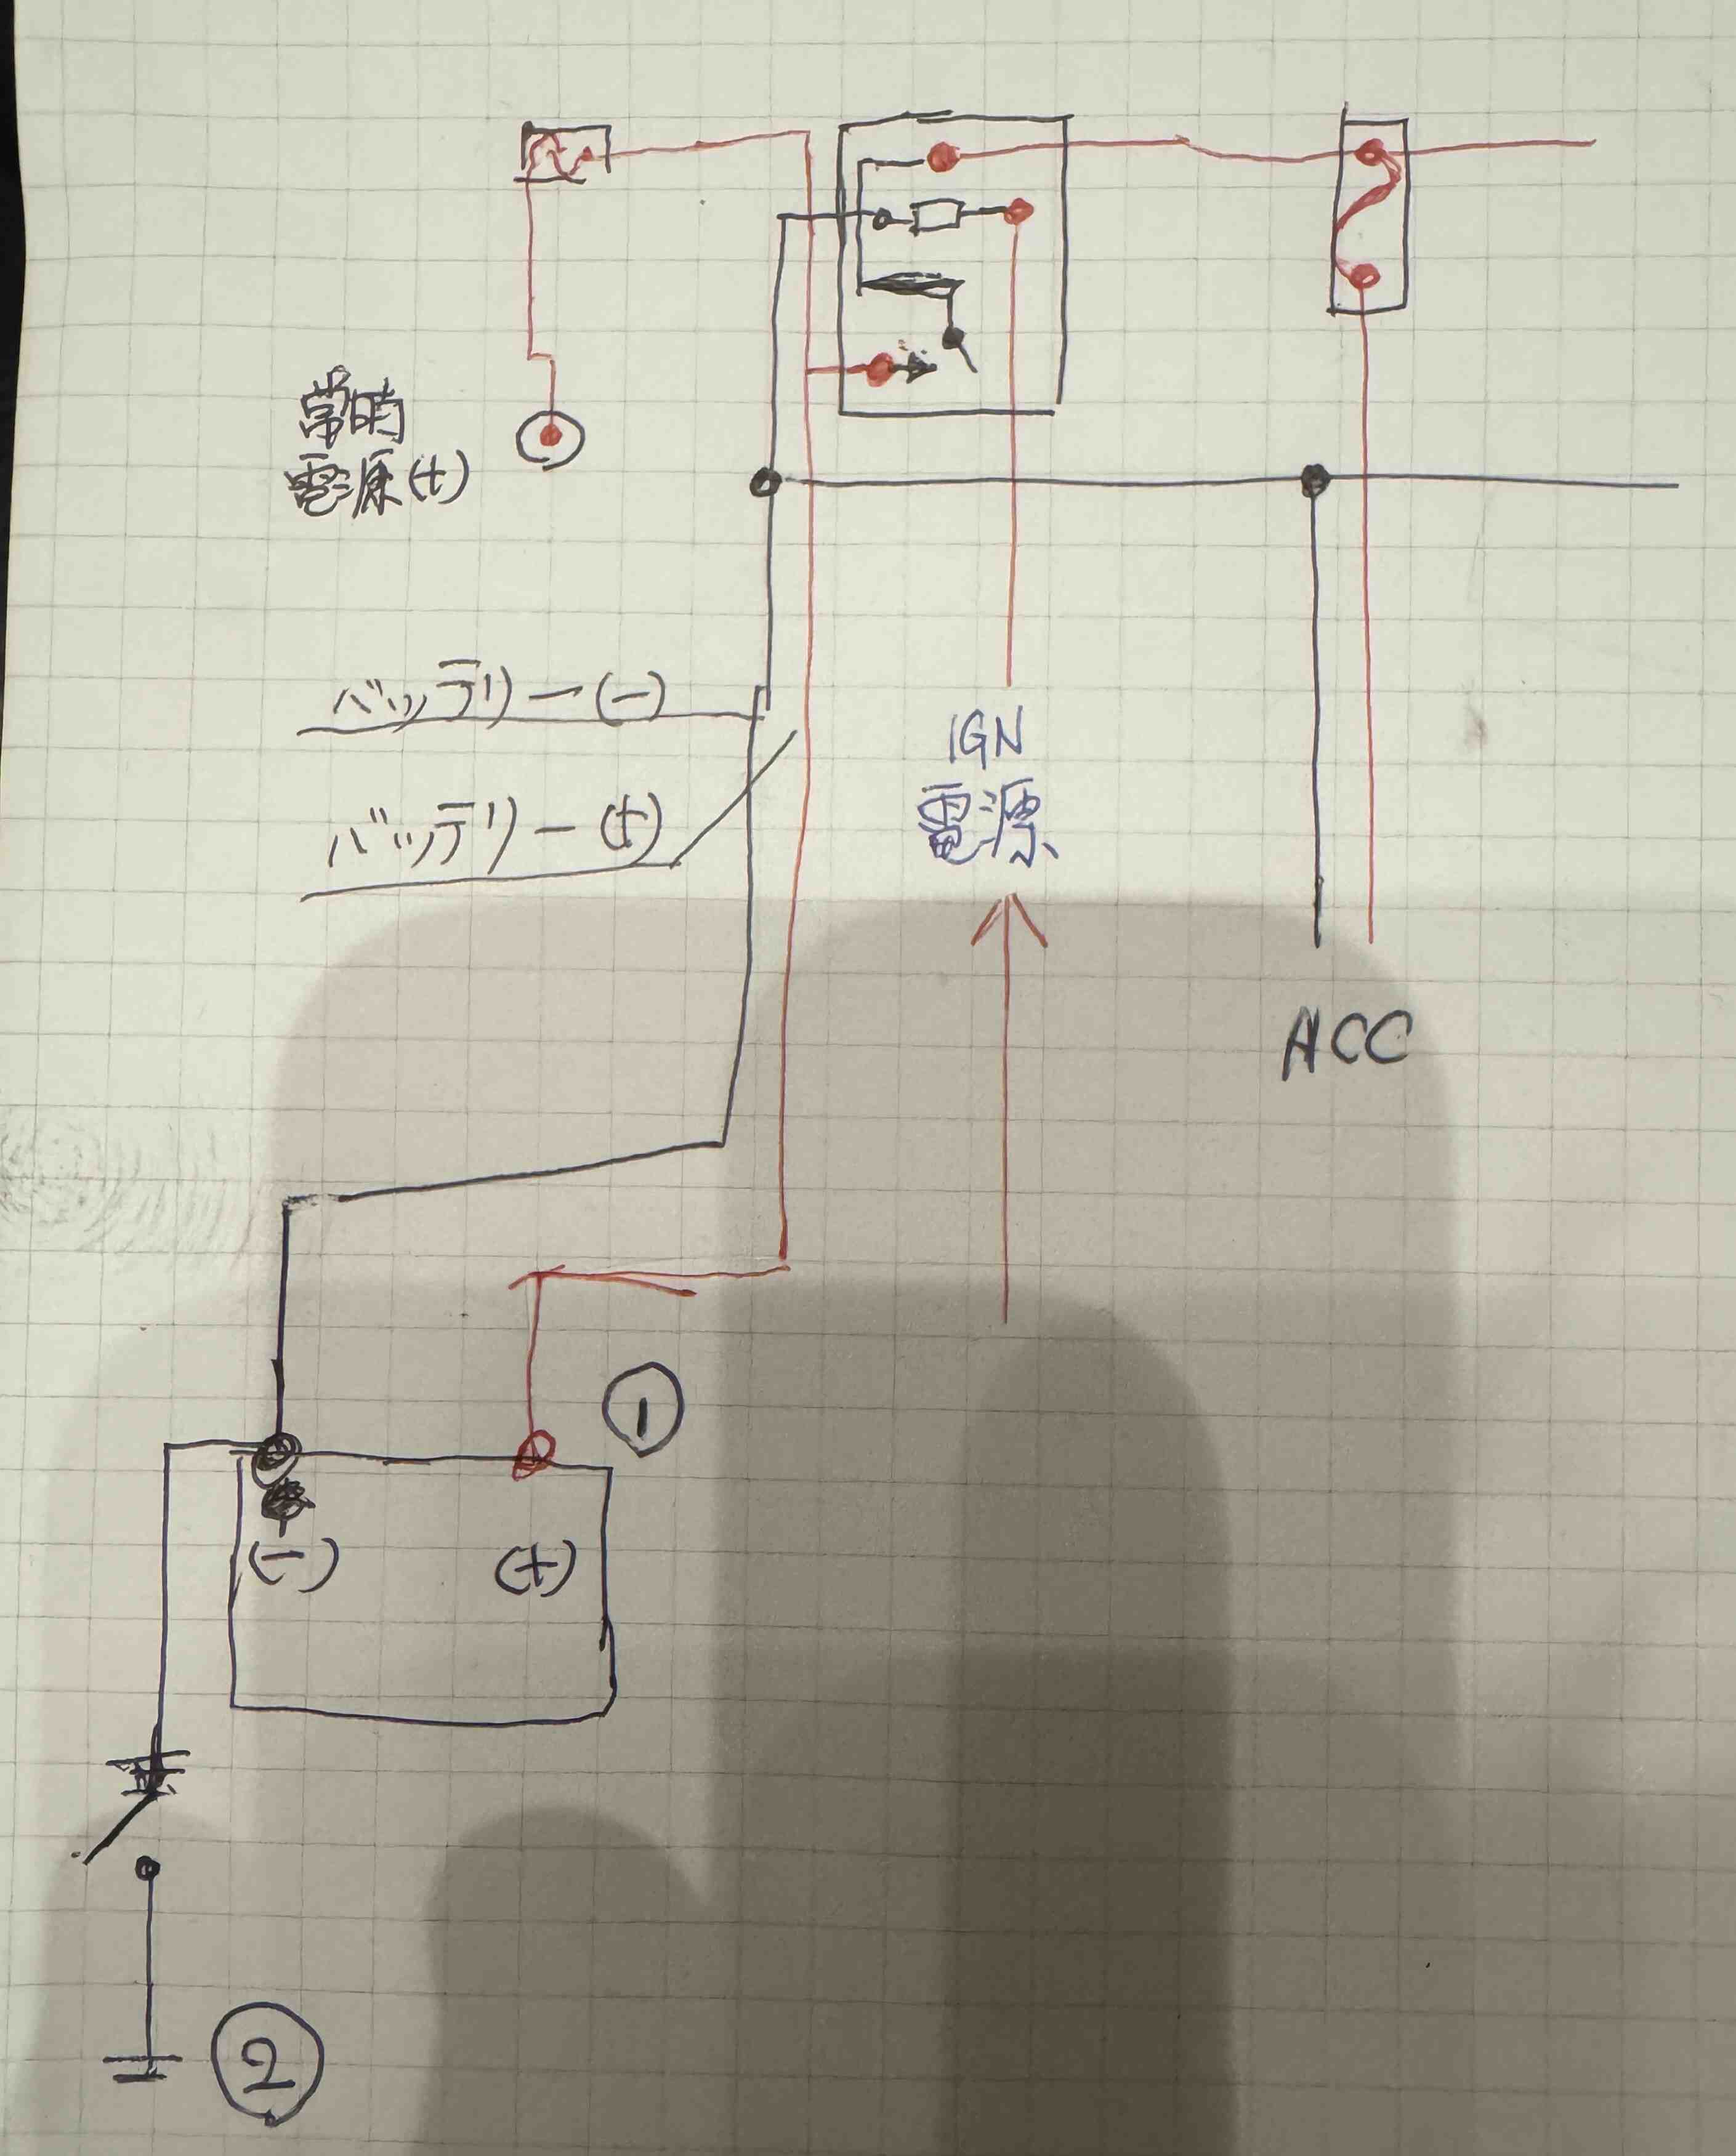 常時
電源(+)
バッテリー(-)
バッテリー(+)
IGN
電源
ACC
①
(-) (+)
②